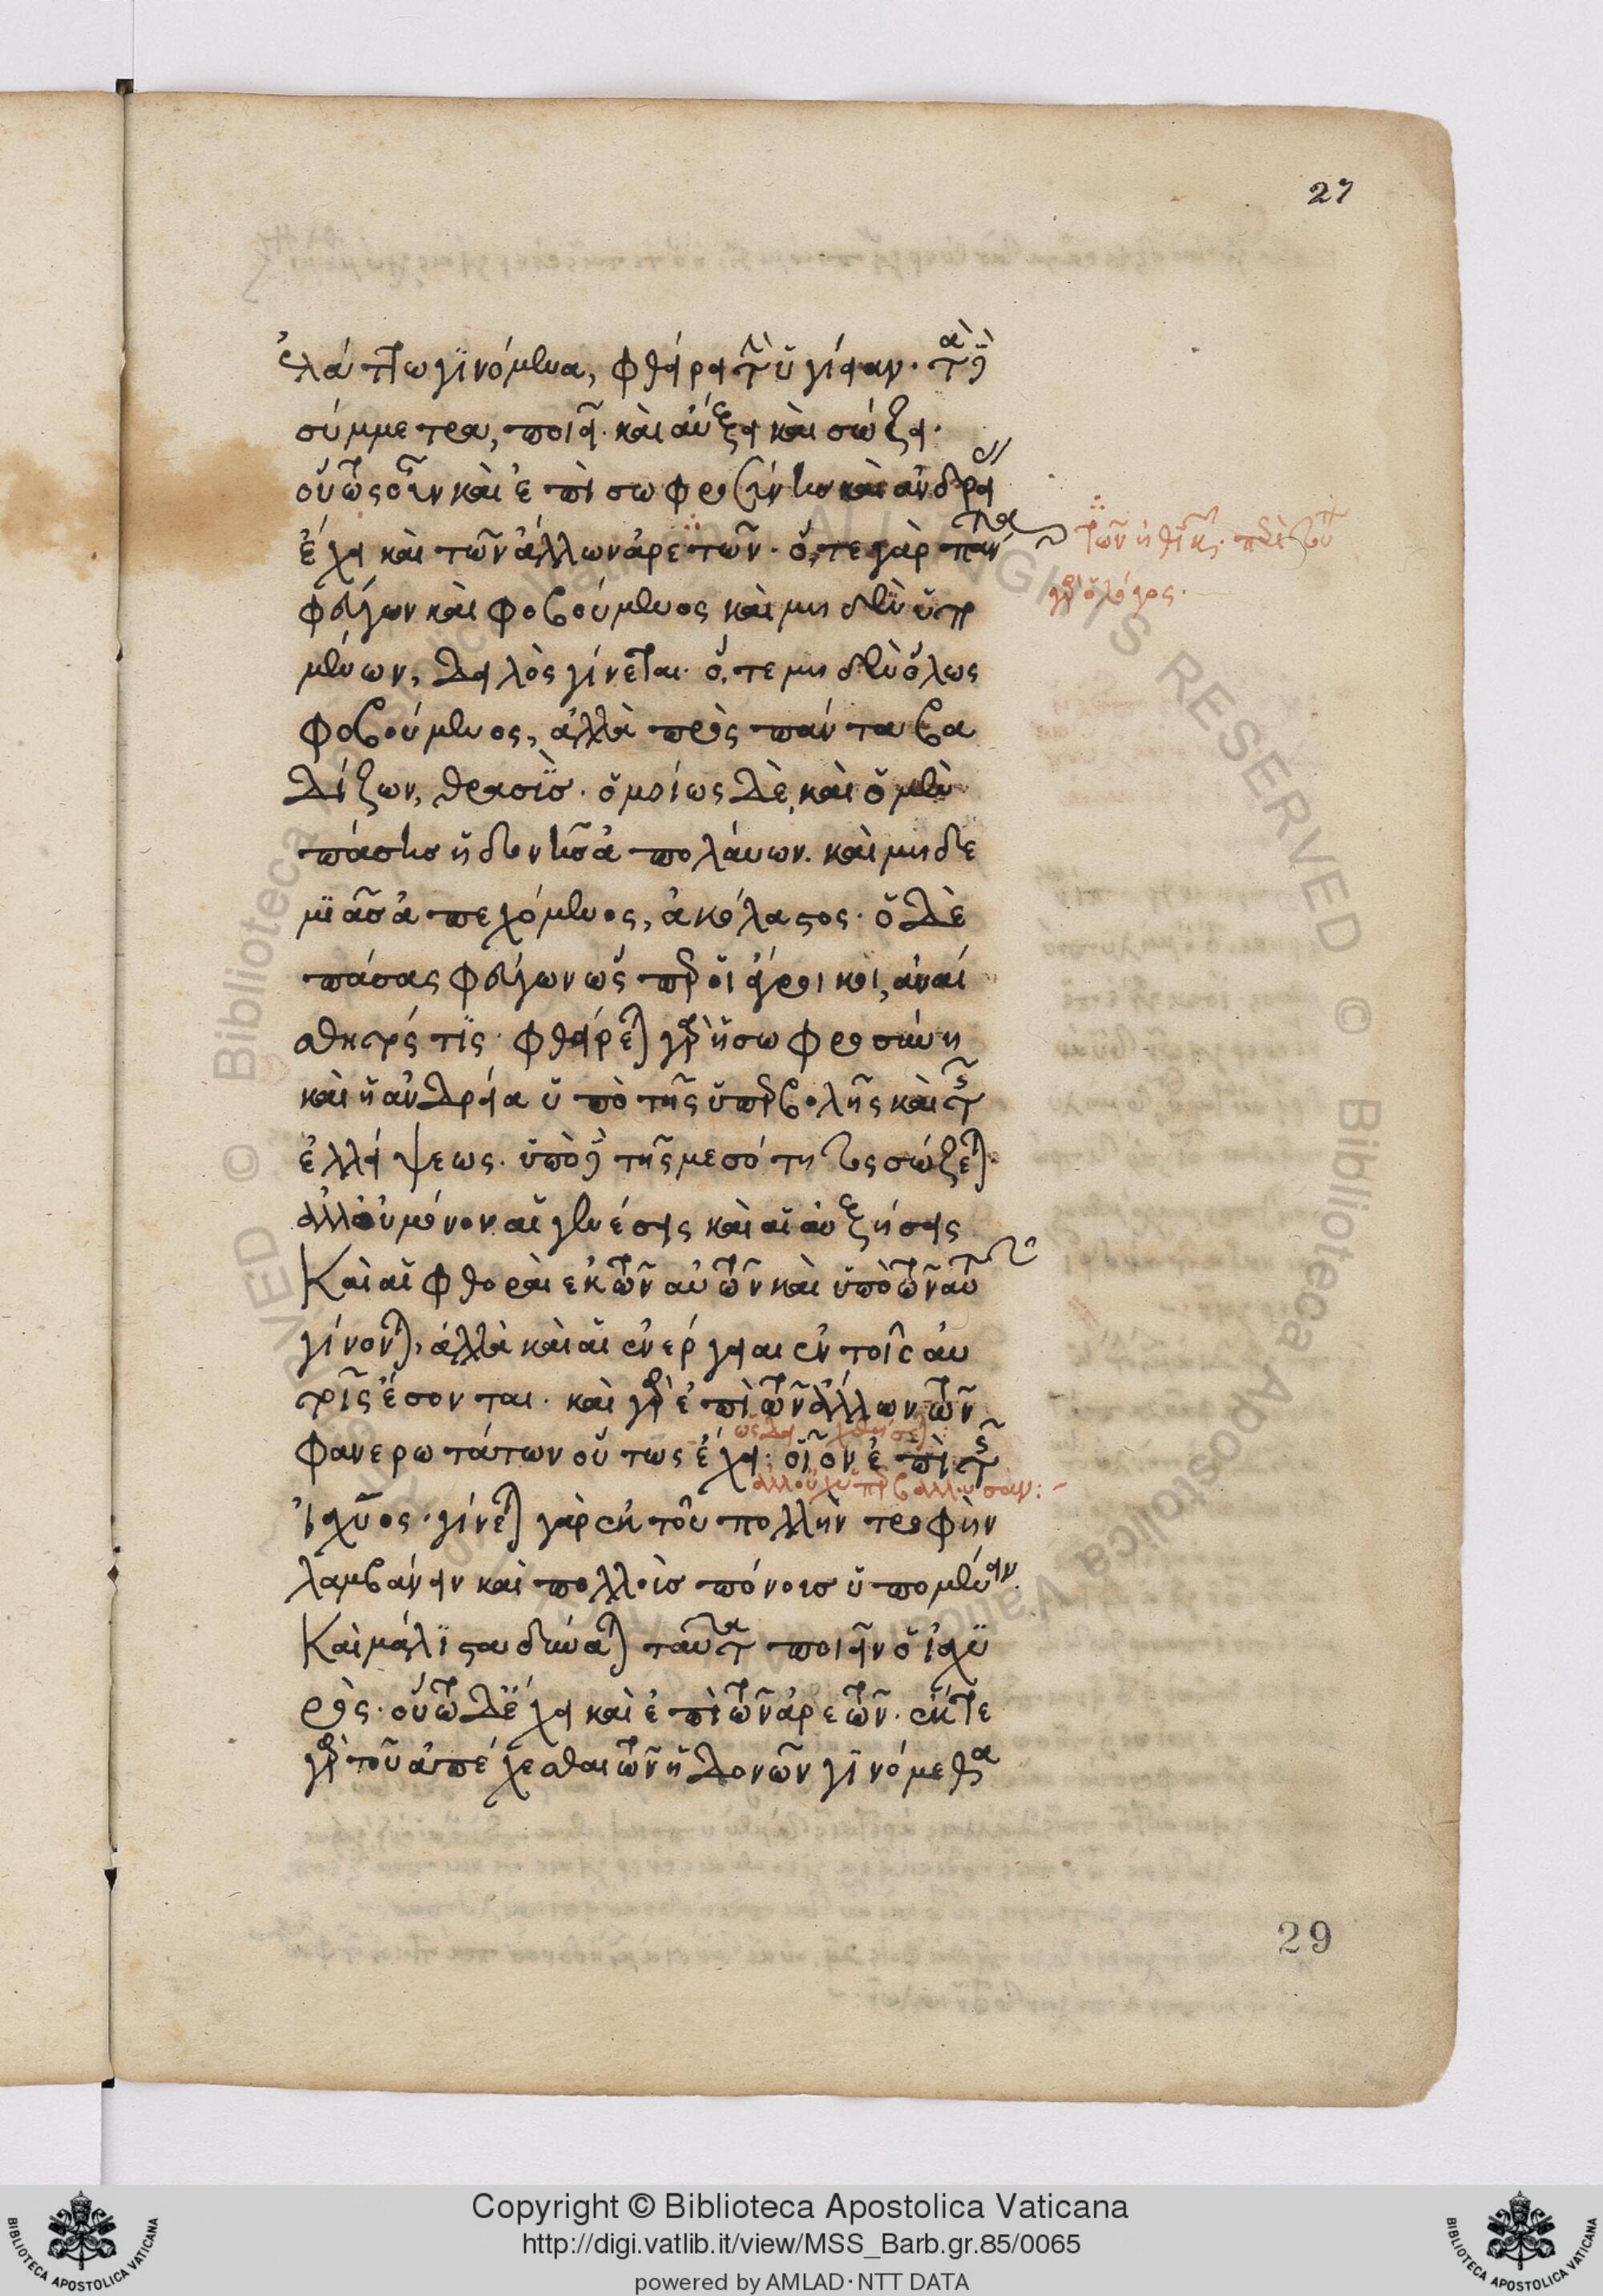 27
ἐλάττω γινόμενα, φθείρει τὴν ὑγίειαν· τὰ δὲ
σύμμετρα, ποιεῖ καὶ αὔξει καὶ σώζει·
οὕτως οὖν καὶ ἐπὶ σωφροσύνης καὶ ἀνδρείας
ἔχει καὶ τῶν ἄλλων ἀρετῶν· ὅ, τε γὰρ πάντα
φεύγων καὶ φοβούμενος καὶ μηδὲν ὑπο
μένων, δειλὸς γίνεται· ὅ, τε μηδὲν ὅλως
φοβούμενος, ἀλλὰ πρὸς πάντα βα
δίζων, θρασύς· ὁμοίως δὲ καὶ ὁ μὲν
πάσης ἡδονῆς ἀπολαύων· καὶ μηδε
μιᾶς ἀπεχόμενος, ἀκόλαστος· ὁ δὲ
πάσας φεύγων ὥσπερ οἱ ἄγροικοι, ἀναί
σθητός τις· φθείρεται γὰρ ἡ σωφροσύνη
καὶ ἡ ἀνδρεία ὑπὸ τῆς ὑπερβολῆς καὶ τῆς
ἐλλείψεως· ὑπὸ δὲ τῆς μεσότητος σώζεται·
ἀλλ' οὐ μόνον αἱ γενέσεις καὶ αἱ αὐξήσεις
Καὶ αἱ φθοραὶ ἐκ τῶν αὐτῶν καὶ ὑπὸ τῶν αὐτῶν
γίνονται, ἀλλὰ καὶ αἱ ἐνέργειαι ἐν τοῖς αὐ
τοῖς ἔσονται· καὶ γὰρ ἐπὶ τῶν ἄλλων τῶν
φανερωτάτων οὕτως ἔχει· οἷον ἐπὶ τῆς
ἰσχύος· γίνεται γὰρ ἐκ τοῦ πολλὴν τροφὴν
λαμβάνειν καὶ πολλοὺς πόνους ὑπομένειν·
Καὶ μάλιστα δύναται ταῦτα ποιεῖν ὁ ἰσχυ
ρός· οὕτω δ' ἔχει καὶ ἐπὶ τῶν ἀρετῶν· ἔκ τε
γὰρ τοῦ ἀπέχεσθαι τῶν ἡδονῶν γινόμεθα
29
Copyright © Biblioteca Apostolica Vaticana
http://digi.vatlib.it/view/MSS_Barb.gr.85/0065
powered by AMLAD·NTT DATA